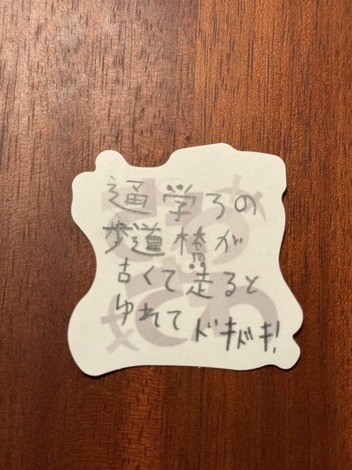 通学ろの
歩道橋が
古くて走ると
ゆれてドキドキ!